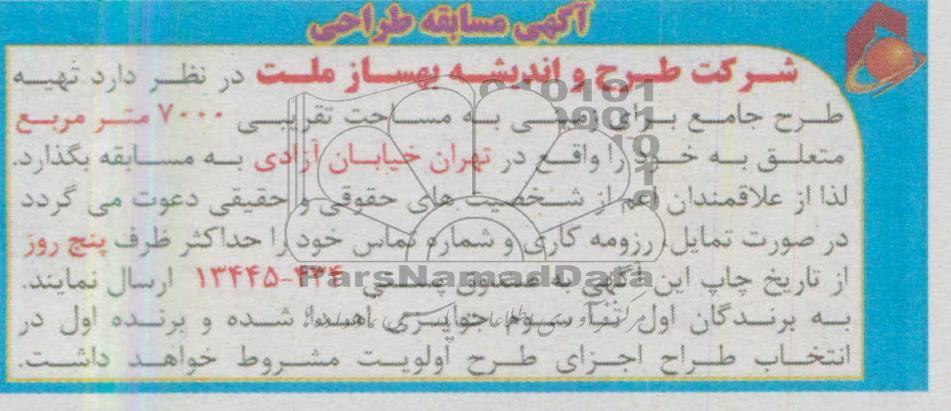 آگهی مسابقه طراحی
شرکت طرح و اندیشه بهساز ملت در نظر دارد تهیه
طرح جامع برای زمینی به مساحت تقریبی ۷۰۰۰ متر مربع
متعلق به خود را واقع در تهران خیابان آزادی به مسابقه بگذارد.
لذا از علاقمندان اعم از شخصیت های حقوقی و حقیقی دعوت می گردد
در صورت تمایل، رزومه کاری و شماره تماس خود را حداکثر ظرف پنج روز
از تاریخ چاپ این آگهی به صندوق پستی ۴۳۴-۱۳۴۴۵ ارسال نمایند.
به برندگان اول تا سوم جوایزی اهدا شده و برنده اول در
انتخاب طراح اجزای طرح اولویت مشروط خواهد داشت.
ParsNamadData